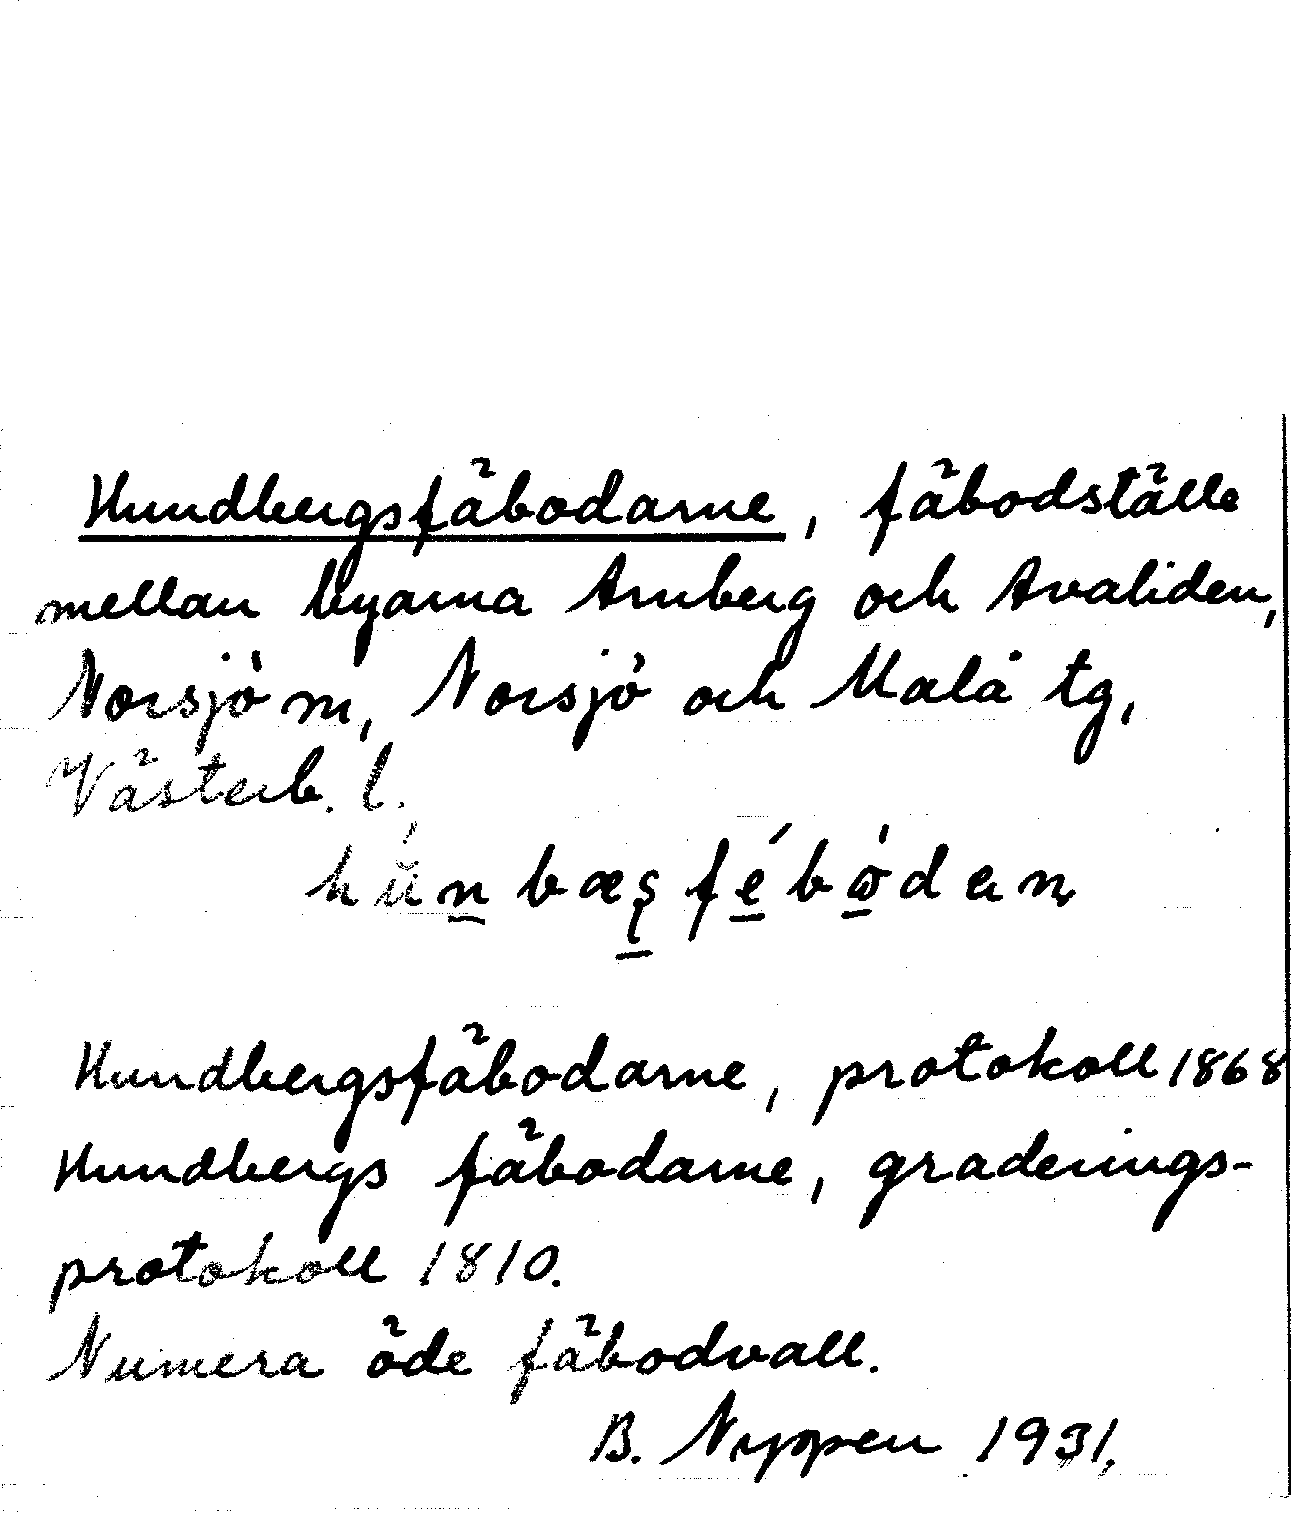 Hundbergsfäbodarne, fäbodställe
mellan byarna Arnberg och Avaliden,
Norsjö sn, Norsjö och Malå tg,
Västerb. l.
Hundbergsfäbodarne, protokoll 1868
Hundbergs fäbodarne, graderings-
protokoll 1810.
Numera öde fäbodvall.
B. Nyppen 1931.